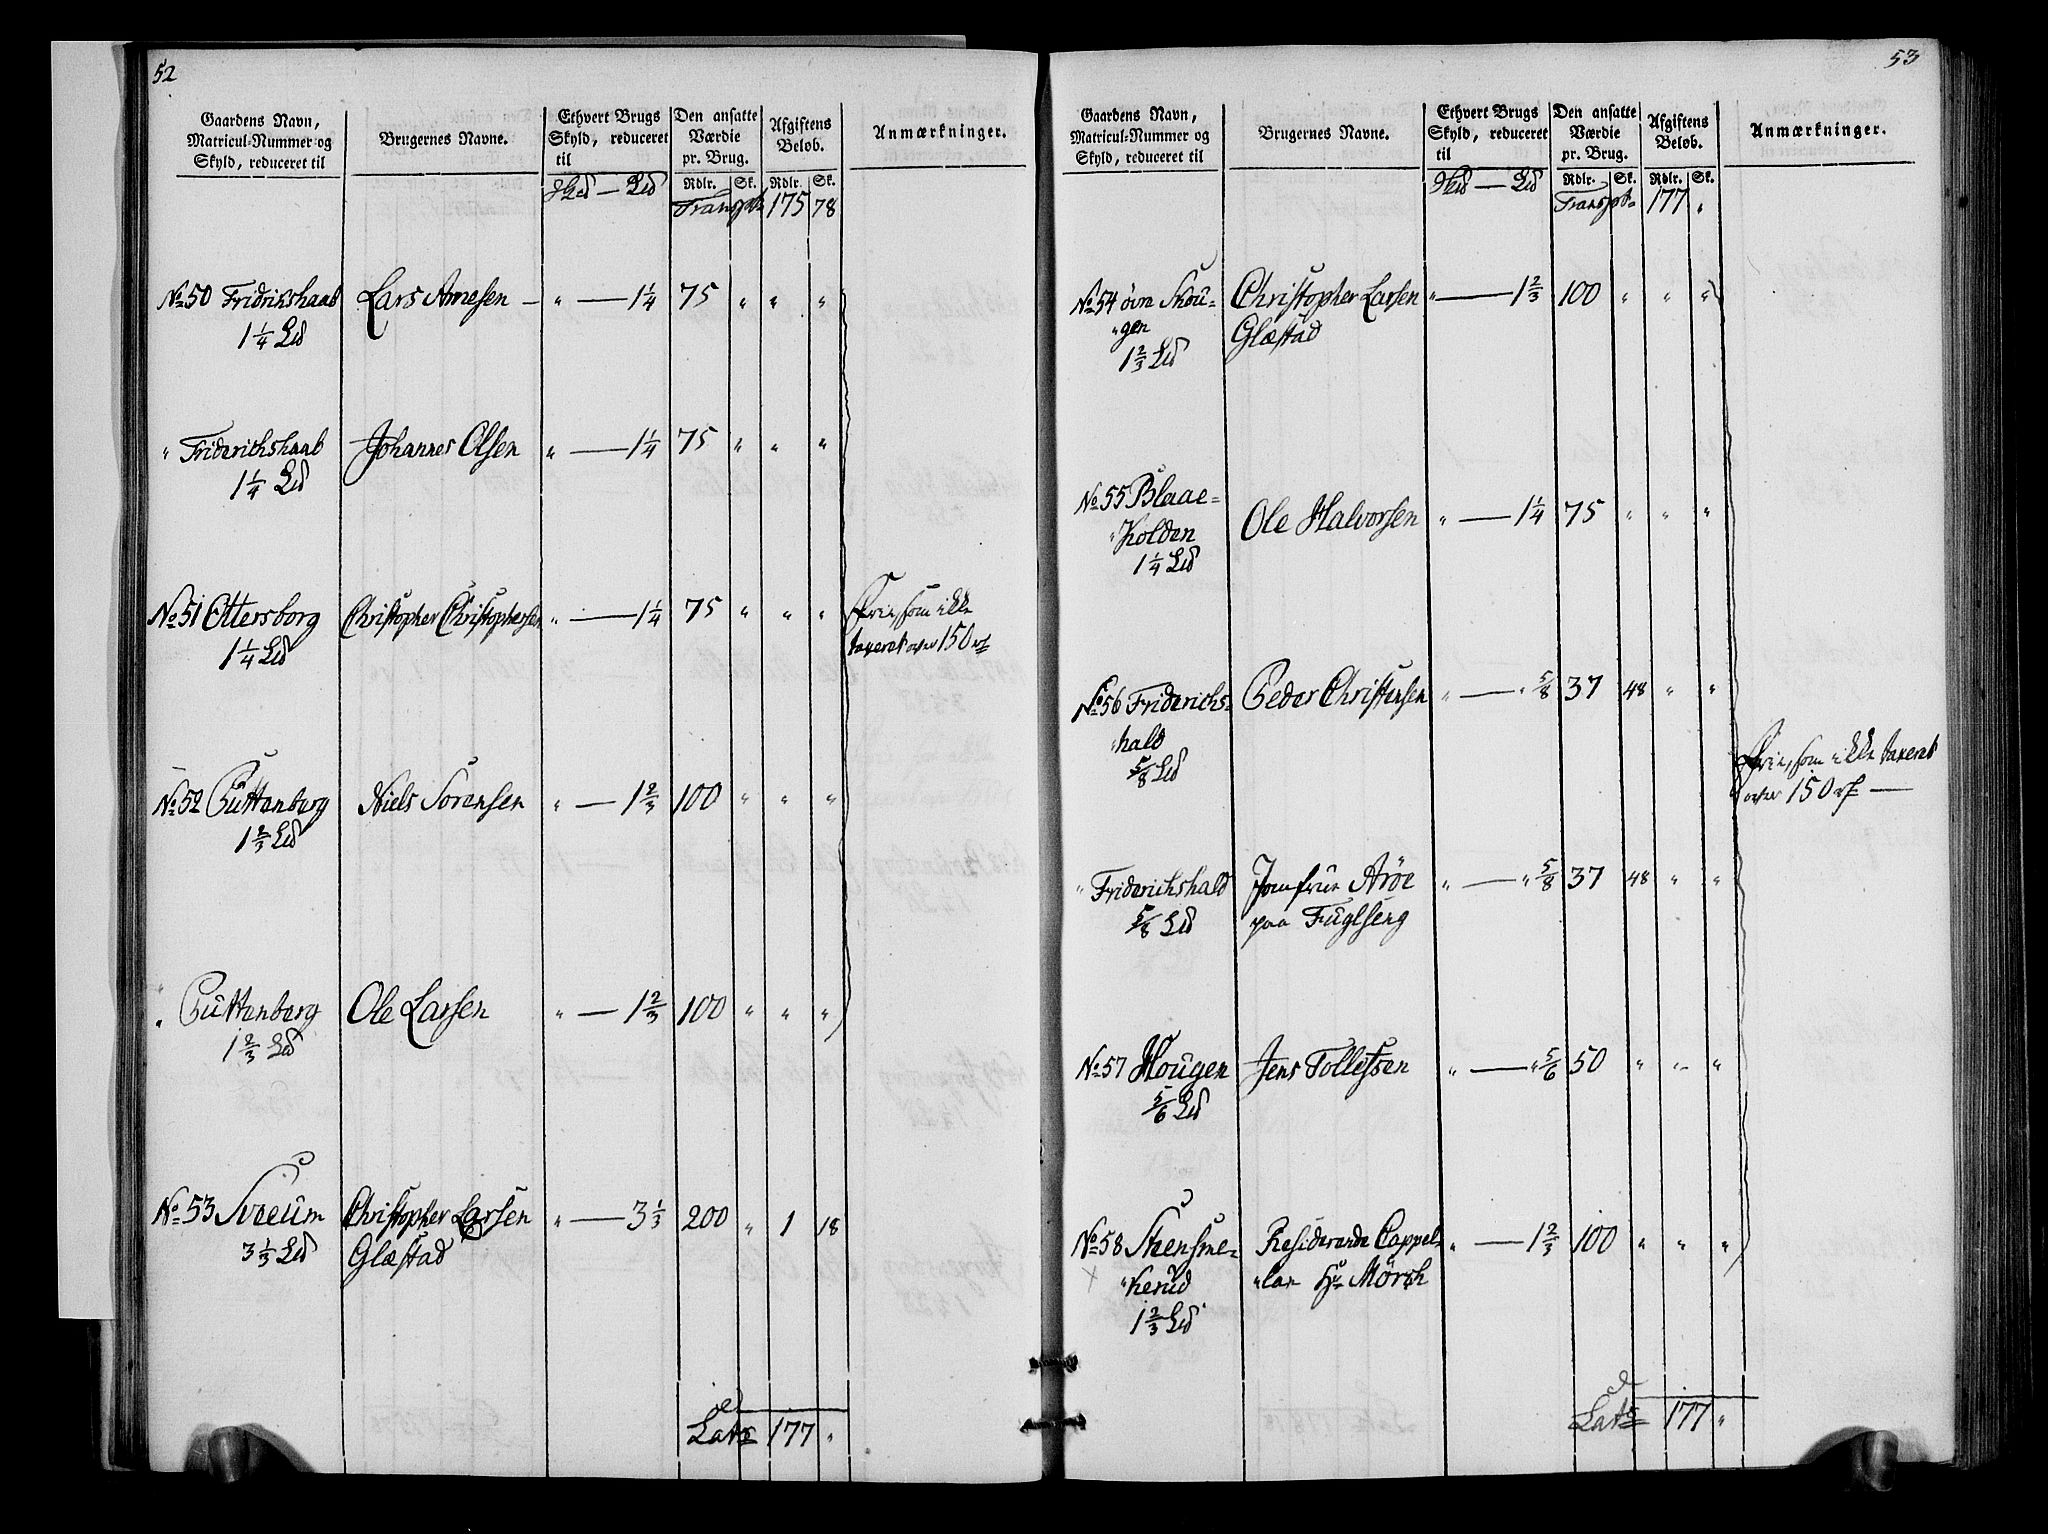 52
Gaardens Navn, Matricul-Nummer og Skyld, reduceret til
Brugernes Navne.
Ethvert Brugs Skyld, reduceret til
Den ansatte Værdie pr. Brug.
Afgiftens Beløb.
Anmærkninger.
Rdlr. Sk. Rdlr. Sk.
Hud — Ld Transpt 175 78
No 50 Fridrikshaab Lars Arnesen — " — 1 1/4 75 " " "
1 1/4 Ld
" Friderichshaab Johannes Olsen " — 1 1/4 75 " " "
1 1/4 Ld
No 51 Ottersborg Christopher Christophersen " — 1 1/4 75 " " " Frie, som ikke
1 1/4 Ld taxeret over 150 rd
No 52 Guttenberg Niels Sorensen " — 1 2/3 100 " " "
1 2/3 Ld
" Guttenberg Ole Larsen " — 1 2/3 100 " " "
1 2/3 Ld
No 53 Sveeum Christopher Larsen " — 3 1/3 200 " 1 18
3 1/3 Ld Glæstad
Lats 177 "
53
Gaardens Navn, Matricul-Nummer og Skyld, reduceret til
Brugernes Navne.
Ethvert Brugs Skyld, reduceret til
Den ansatte Værdie pr. Brug.
Afgiftens Beløb.
Anmærkninger.
Rdlr. Sk. Rdlr. Sk.
Hud — Ld Transpt 177 "
No 54 övre Skou= Christopher Larsen " — 1 2/3 100 " " "
"gen Glæstad
1 2/3 Ld
No 55 Blaae=
"Kolden Ole Halvorsen " — 1 1/4 75 " " "
1 1/4 Ld
No 56 Friderichs= Peder Christensen " — " 5/8 37 48 " "
"hald
5/8 Ld
Frie, som ikke taxeret
over 150 rd —
" Friderichshald Jomfrue Aröe " — " 5/8 37 48 " "
5/8 Ld paa Fuglseng
No 57 Hougen Jens Tollefsen " — " 5/6 50 " " "
5/6 Ld
No 58 Steensme= Residerende Cappel= " — 1 2/3 100 " " "
"kerud "lan Hr Mörch
1 2/3 Ld
Lats 177 "